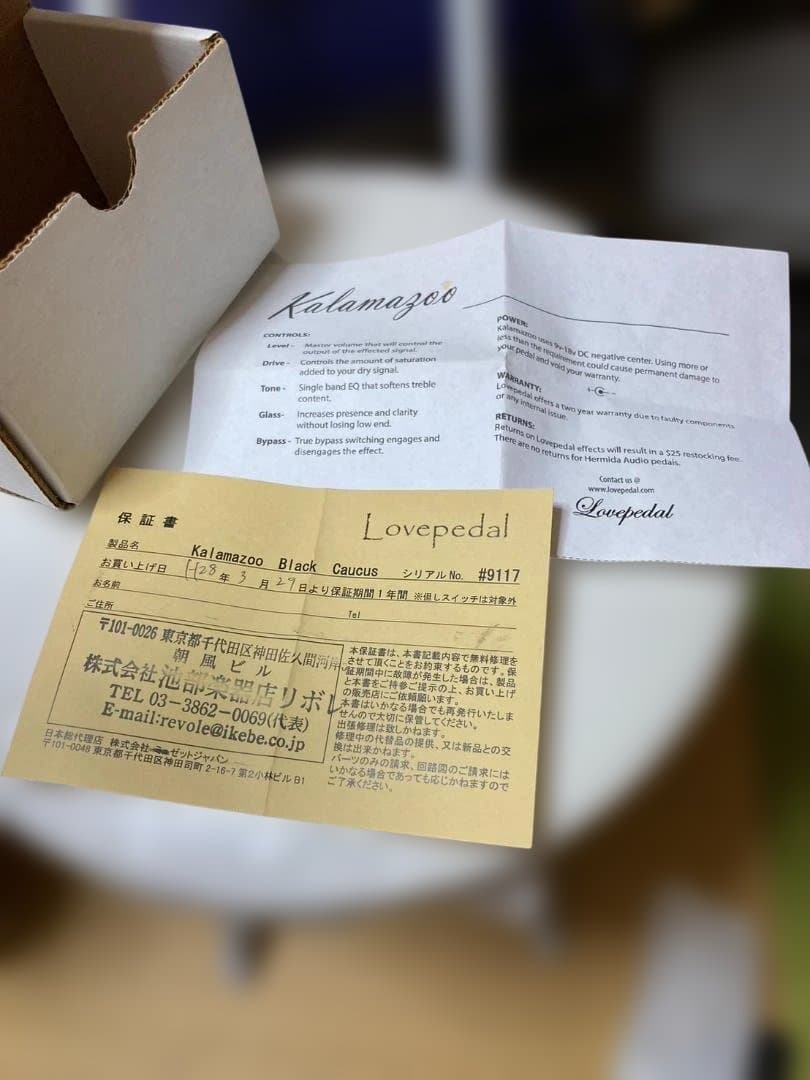 Kalamazoo
CONTROLS:
Level - Master volume that will control the
output of the effected signal.
Drive - Controls the amount of saturation
added to your dry signal.
Tone - Single band EQ that softens treble
content.
Glass- Increases presence and clarity
without losing low end.
Bypass - True bypass switching engages and
disengages the effect.
POWER:
Kalamazoo uses 9v-18v DC negative center. Using more or
less than the requirement could cause permanent damage to
your pedal and void your warranty.
WARRANTY:
Lovepedal offers a two year warranty due to faulty components
or any internal issue.
RETURNS:
Returns on Lovepedal effects will result in a $25 restocking fee.
There are no returns for Hermida Audio pedals.
Contact us @
www.lovepedal.com
Lovepedal
保証書
Lovepedal
製品名 Kalamazoo Black Caucus シリアルNo. #9117
お買い上げ日 H28年3月29日より保証期間1年間 ※但しスイッチは対象外
お名前
ご住所 Tel
〒101-0026 東京都千代田区神田佐久間河岸
朝風ビル
株式会社池部楽器店リボレ
TEL 03-3862-0069(代表)
E-mail:revole@ikebe.co.jp
日本総代理店 株式会社 ゼットジャパン
〒101-0048 東京都千代田区神田司町 2-16-7 第2小林ビル B1
本保証書は、本書記載内容で無料修理を
させて頂くことをお約束するものです。保
証期間中に故障が発生した場合は、製品
と本書をご持参ご提示の上、お買い上げ
の販売店にご依頼願います。
本書はいかなる場合でも再発行いたしま
せんので大切に保管してください。
出張修理は致しかねます。
修理中の代替品の提供、又は新品との交
換は出来かねます。
パーツのみの請求、回路図のご請求には
いかなる場合であっても応じかねますので
ご了承ください。